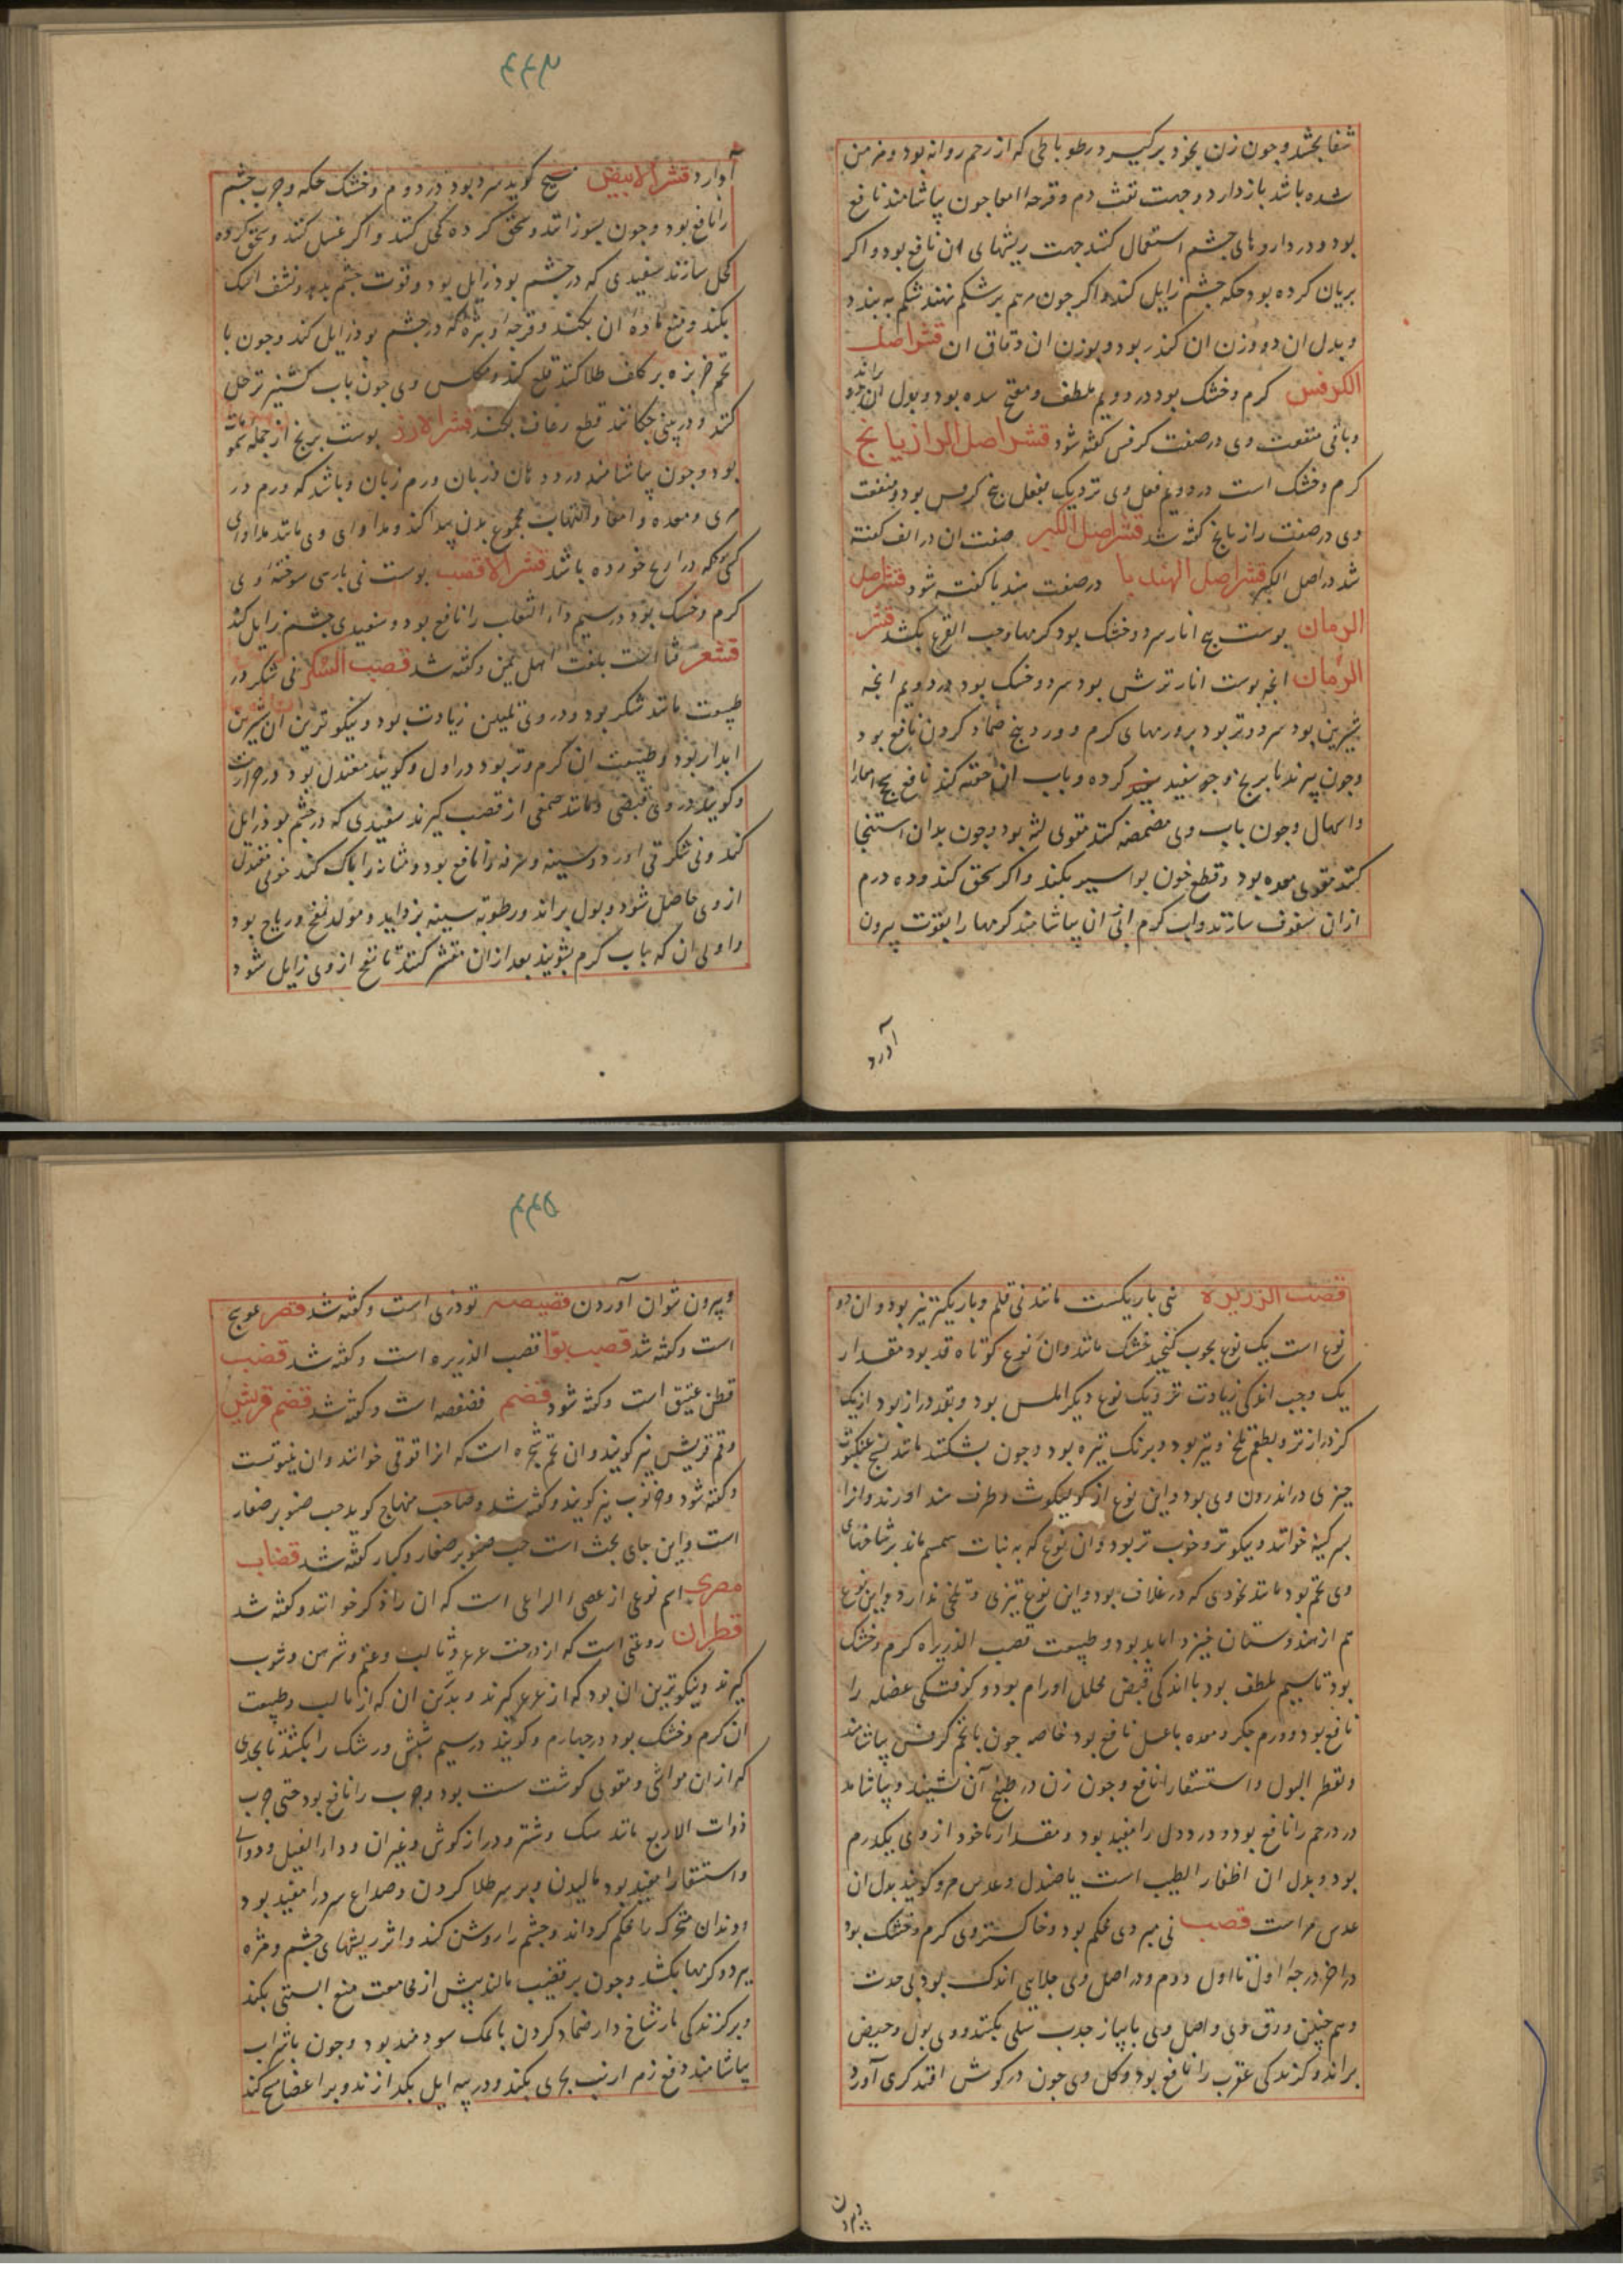 شفا بخشد و جون زن بخود برکیرد رطوباطی که از رحم روانه بود و مزمن
شده باشد باز دارد و جهت نفث دم و قرحه امعا جون بیاشامند نافع
بود و در داروهای جشم استعمال کنند جهت ریشهای ان نافع بود و اکر
بریان کرده بود حکه جشم زایل کند و اکر جون مرهم بر شکم نهند شکم به بندد
و بدل ان دو وزن ان کندر بود و بوزن ان دقاق ان قشر اصل
الکرفس کرم و خشک بود در دویم ملطف و مفتح سده بود و بول را براند
و باقی منفعت وی در صفت کرفس کفته شود قشر اصل الرازیانج
کرم و خشک است در دویم فعل وی نزدیک بفعل بیخ کرفس بود و منفعت
وی در صفت رازیانج کفته شد قشر اصل الکبر صفت ان در الف کفته
شد در اصل الکبر قشر اصل الهندبا در صفت هندبا کفته شود قشر اصل
الرمان بوست بیخ انار سرد و خشک بود کرمها و حب القرع بکشد قشر
الرمان انجه بوست انار ترش بود سرد و خشک بود در دویم انجه
شیرین بود سرد و تر بود بر ورمهای کرم و ورد بنج ضماد کردن نافع بود
و جون بپزند با برنج و جو سفید کرده و باب ان حقنه کند نافع سحج امعا را
و اسهال و جون باب وی مضمضه کنند مقوی لثه بود و جون بدان استنجا
کنند مقوی معده بود و قطع خون بواسیر بکند و اکر سحق کنند و ده درم
از ان سفوف سازند و اب کرم از پی ان بیاشامند کرمها را بقوت بیرون
آورد
۴۴۴
آوارد قشر الابیض مسیح کوید سرد بود در دوم و خشک حکه و جرب جشم
را نافع بود و جون بسوزانند و سحق کرده کحل کنند و اکر غسل کنند و سحق کرده
کحل سازند سفیدی که در جشم بود زایل بود و قوت جشم بدهد و نشف اشک
بکند و منع ماده ان بکند و قرحه و بثره که در جشم بود زایل کند و جون با
تخم خربزه بر کلف طلا کنند قلع کند و مکلس وی جون باب کشنیز تر حل
کنند و در بینی جکانند قطع رعاف بکند قشر الارز بوست برنج از جمله سموم
بود و جون بیاشامند در دهان و زبان ورم زبان و باشد که ورم در
مری و معده و امعا و التهاب مجموع بدن پیدا کند و مداوای وی مانند مداوای
کسی که ذراریح خورده باشد قشر القصب بوست نی بارسی سوخته وی
کرم و خشک بود در سیم داء الثعلب را نافع بود و سفیدی جشم زایل کند
قشعر قثا است بلغت اهل یمن و کفته شد قصب السکر نی شکر در
طبیعت مانند شکر بود و در وی تلیین زیادت بود و نیکو ترین ان شیرین
ابدار بود و طبیعت ان کرم و تر بود در اول و کویند معتدل بود در حرارت
و کویند در وی قبضی و مانند صمغی از قصب کیرند سفیدی که در جشم بود زایل
کند و نی شکر قی اورد و سینه و سرفه را نافع بود و مثانه را پاک کند خونی معتدل
از وی حاصل شود و بول براند و رطوبة سینه بزداید و مولد نفخ و ریاح بود
و اولی ان که باب کرم بشویند بعد از ان مقشر کنند تا نفخ از وی زایل شود
قصب الزریره نی باریکست مانند نی قلم و باریکتر نیز بود و ان دو
نوع است یک نوع بجوب کنجد خشک ماند و ان نوع کوتاه قد بود مقدار
یک وجب اندکی زیادت نزدیک نوع دیکر املس بود و بقد دراز بود از یک
کز درازتر و بطعم تلخ و تیز بود و برنک تیره بود و جون بشکنند مانند نسج عنکبوت
جیزی در اندرون وی بود و این نوع از طرف هند اورند و انرا
خوانند و نیکوتر و خوب تر بود و ان نوع که به نبات سمسم ماند بر شاخهای
وی تخم بود مانند نخودی که در غلاف بود و این نوع تیزی و تلخی ندارد و این نوع
هم از هندوستان خیزد اما بد بود و طبیعت قصب الذریره کرم و خشک
بود تا سیم ملطف بود با اندکی قبض محلل اورام بود و کوفتکی عضله را
نافع بود و ورم جکر و معده با عسل نافع بود خاصه جون با تخم کرفس بیاشامند
و تقطیر البول و استسقا را نافع و جون زن در طبیخ آن نشیند و بیاشامد
درد رحم را نافع بود و درد دل را مفید بود و مقدار ماخوذ از وی یکدرم
بود و بدل ان اظفار الطیب است با صندل و عدس مر و کویند بدل ان
عدس مر است قصب نی مبردی محکم بود و خاکستر وی کرم و خشک بود
در اخر درجه اول تا اول دوم و در اصل وی جلایی اندک بود بی حدت
و هم جنین ورق وی و اصل وی با پیاز جذب سلی بکند و وی بول و حیض
براند و کزندکی عقرب را نافع بود و کل وی جون در کوش افتد کری آورد
و بیرون
۴۴۵
و بیرون نتوان آوردن قصیصه تودری است و کفته شد قصر عوسج
است و کفته شد قصب بوا قصب الذریره است و کفته شد قضب
قطن عتیق است و کفته شود قضم فصفصه است و کفته شد قضم قریش
و قم قریش نیز کویند و ان تخم شجره است که انرا قوقی خوانند و ان ینبوتست
و کفته شود و خرنوب نیز کویند و کفته شد و صاحب منهاج کوید حب صنوبر صغار
است و این جای بحث است حب صنوبر صغار و کبار کفته شد قضاب
مصری اسم نوعی از عصی الراعی است که ان را ذکر خوانند و کفته شد
قطران روغنی است که از درخت عرعر و تالب و عتم و شربین و شوب
کیرند و نیکوترین ان بود که از عرعر کیرند و بدترین ان که از تالب و طبیعت
ان کرم و خشک بود در جهارم و کویند در سیم شپش و رشک را بکشد تا بحدی
که از ان مواشی و مقوی کوشت سست بود و جرب را نافع بود حتی جرب
ذوات الاربع مانند سک و شتر و دراز کوش و غیر ان و داء الفیل و دوالی
و استسقا را مفید بود مالیدن و بر سر طلا کردن و صداع سرد را مفید بود
و دندان متحرک را محکم کرداند و جشم را روشن کند و اثر ریشهای جشم و مژه
ببرد و کرمها بکشد و جون بر قضیب مالند پیش از مجامعت منع ابستنی بکند
و بر کزندکی مار شاخ دار ضماد کردن با نمک سودمند بود و جون با شراب
بیاشامند دفع زهر ارنب بحری بکند و در پیه ایل بکدازند و بر اعضا مسح کند